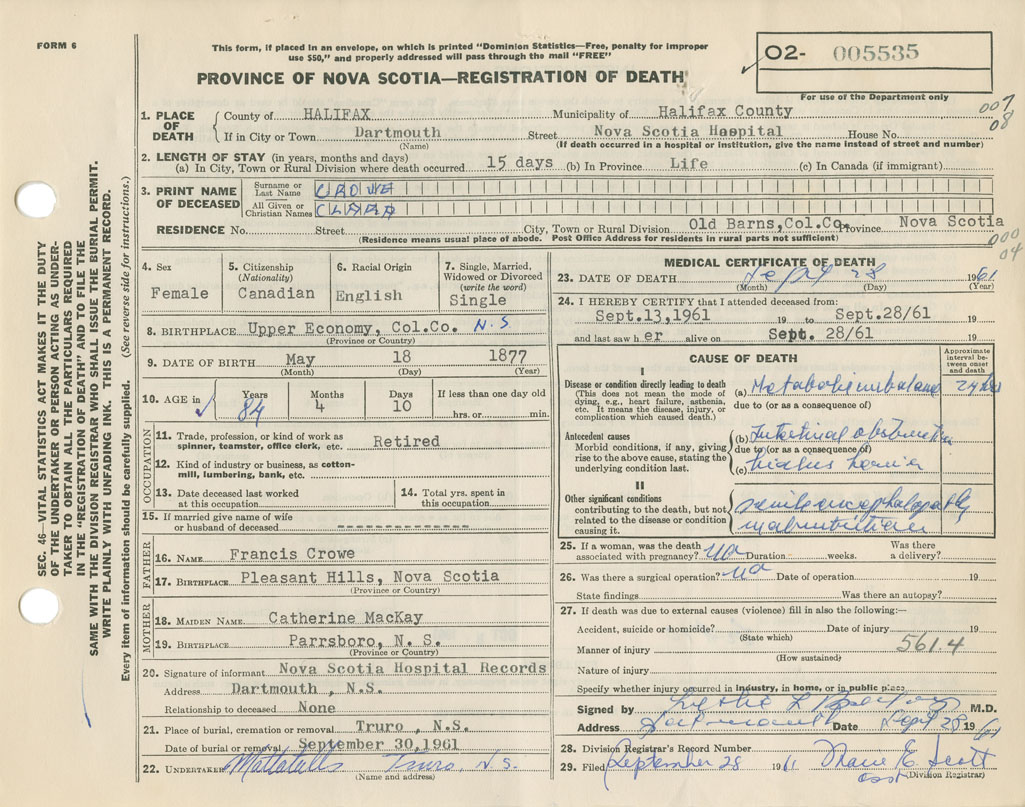 FORM 6
This form, if placed in an envelope, on which is printed "Dominion Statistics—Free, penalty for improper
use $50," and properly addressed will pass through the mail "FREE"
PROVINCE OF NOVA SCOTIA—REGISTRATION OF DEATH
O2- 005535
For use of the Department only
007
08
1. PLACE OF DEATH
County of HALIFAX Municipality of Halifax County
If in City or Town Dartmouth Street Nova Scotia Hospital House No.
(Name) (If death occurred in a hospital or institution, give the name instead of street and number)
2. LENGTH OF STAY (in years, months and days)
(a) In City, Town or Rural Division where death occurred 15 days (b) In Province Life (c) In Canada (if immigrant)
3. PRINT NAME OF DECEASED
Surname or Last Name CROWE
All Given or Christian Names CLARA
RESIDENCE No. Street City, Town or Rural Division Old Barns, Col. Co. Province Nova Scotia
(Residence means usual place of abode. Post Office Address for residents in rural parts not sufficient)
000
04
4. Sex
Female
5. Citizenship
(Nationality)
Canadian
6. Racial Origin
English
7. Single, Married,
Widowed or Divorced
(write the word)
Single
8. BIRTHPLACE Upper Economy, Col.Co. N.S
(Province or Country)
9. DATE OF BIRTH May 18 1877
(Month) (Day) (Year)
10. AGE in
Years Months Days If less than one day old
84 4 10 hrs. or min.
OCCUPATION
11. Trade, profession, or kind of work as
spinner, teamster, office clerk, etc. Retired
12. Kind of industry or business, as cotton-
mill, lumbering, bank, etc.
13. Date deceased last worked
at this occupation
14. Total yrs. spent in
this occupation
15. If married give name of wife
or husband of deceased
FATHER
16. NAME Francis Crowe
17. BIRTHPLACE Pleasant Hills, Nova Scotia
(Province or Country)
MOTHER
18. MAIDEN NAME Catherine MacKay
19. BIRTHPLACE Parrsboro, N. S.
(Province or Country)
20. Signature of informant Nova Scotia Hospital Records
Address Dartmouth , N.S.
Relationship to deceased None
21. Place of burial, cremation or removal Truro , N.S.
Date of burial or removal September 30,1961
22. UNDERTAKER Mattatalls Truro, N.S.
(Name and address)
MEDICAL CERTIFICATE OF DEATH
23. DATE OF DEATH Sept 28 1961
(Month) (Day) (Year)
24. I HEREBY CERTIFY that I attended deceased from:
Sept.13,1961 19 to Sept.28/61 19
and last saw h er alive on Sept. 28/61 19
CAUSE OF DEATH
Approximate
interval be-
tween onset
and death
I
Disease or condition directly leading to death
(This does not mean the mode of
dying, e.g., heart failure, asthenia,
etc. It means the disease, injury, or
complication which caused death.)
(a) Metabolic imbalance
due to (or as a consequence of)
Antecedent causes
Morbid conditions, if any, giving
rise to the above cause, stating the
underlying condition last.
(b) Intestinal obstruction
due to (or as a consequence of)
(c) hiatus hernia
II
Other significant conditions
contributing to the death, but not
related to the disease or condition
causing it.
senile encephalopathy
malnutrition
25. If a woman, was the death
associated with pregnancy? no Duration weeks. Was there
a delivery?
26. Was there a surgical operation? no Date of operation 19
State findings Was there an autopsy?
27. If death was due to external causes (violence) fill in also the following:—
Accident, suicide or homicide? Date of injury 19
(State which)
Manner of injury 561.4
(How sustained)
Nature of injury
Specify whether injury occurred in industry, in home, or in public place
Signed by Leslie L M.D.
Address Dartmouth Date Sept 28 1961
28. Division Registrar's Record Number
29. Filed September 28 1961 Marie E. Scott
Asst (Division Registrar)
SEC. 46—VITAL STATISTICS ACT MAKES IT THE DUTY
OF THE UNDERTAKER OR PERSON ACTING AS UNDER-
TAKER TO OBTAIN ALL THE PARTICULARS REQUIRED
IN THE "REGISTRATION OF DEATH" AND TO FILE THE
SAME WITH THE DIVISION REGISTRAR WHO SHALL ISSUE THE BURIAL PERMIT.
WRITE PLAINLY WITH UNFADING INK. THIS IS A PERMANENT RECORD.
Every item of information should be carefully supplied. (See reverse side for instructions.)